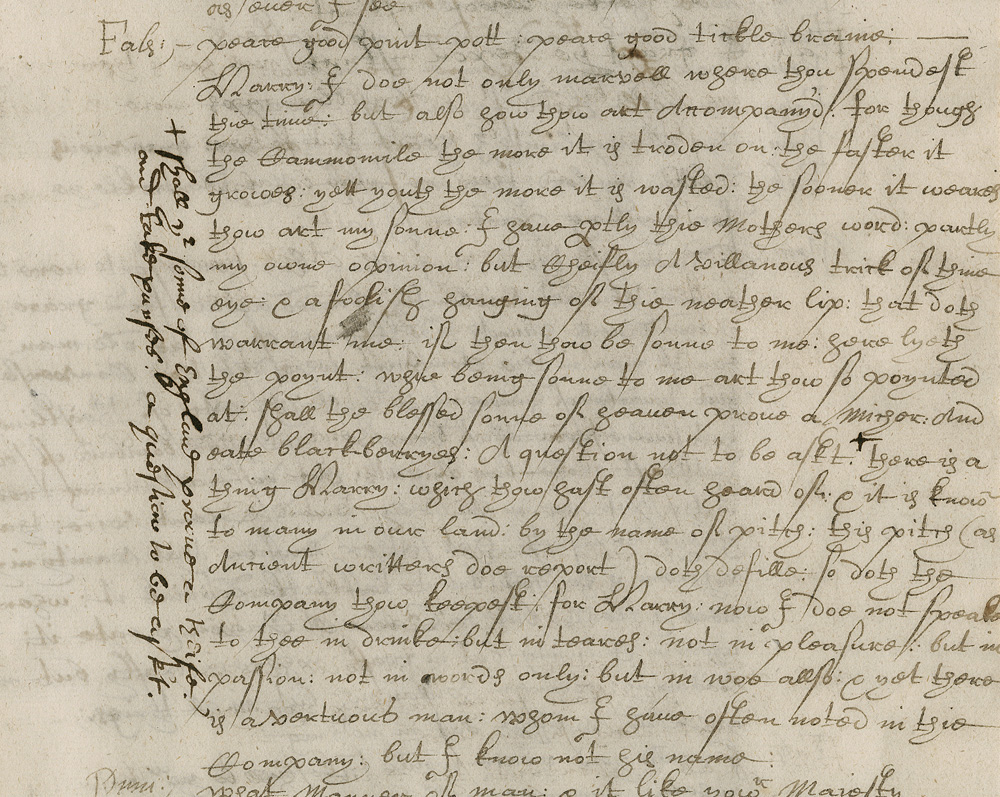 as ever I see
Fals: – peace good pint pott: peace good tickle braine:
Harry: I doe not only marvell where thou spendest
thie time: but also how thow art Accompanyd: for though
the Cammomile the more it is troden on: the faster it
growes: yett youth the more it is wasted: the sooner it weares
thow art my sonne: I have ptly thie Mothers word: partly
my owne opinion: but Cheifly A villanous trick of thine
eye: & a foolish hanging of thie neather lip: that doth
warrant me: if then thow be sonne to me: here lyeth
the poynt: whie being sonne to me art thow so poynted
at: shall the blessed sonne of heaven prove a Micher: And
eate blackberryes: A question not to be askt: + there is a
thing Harry: which thow hast often heard of: & it is know
to many in our land: by the name of pitch: this pitch (as
Ancient writters doe report) doth defille: so doth the
Company thow keepest: for Harry: now I doe not speake
to thee in drinke: but in teares: not in pleasure: but in
passion: not in words only: but in woe allso: & yet there
is a vertuous man: whom I have often noted in thie
Company: but I know not his name
What Manner of man: & it like your Majesty
+ shall ye sonne of England prove a theife
and take purses: a question to be askt.